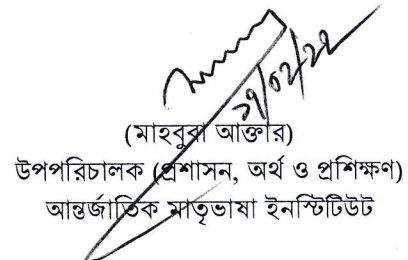 (মাহবুবা আক্তার)
উপপরিচালক (প্রশাসন, অর্থ ও প্রশিক্ষণ)
আন্তর্জাতিক মাতৃভাষা ইনস্টিটিউট